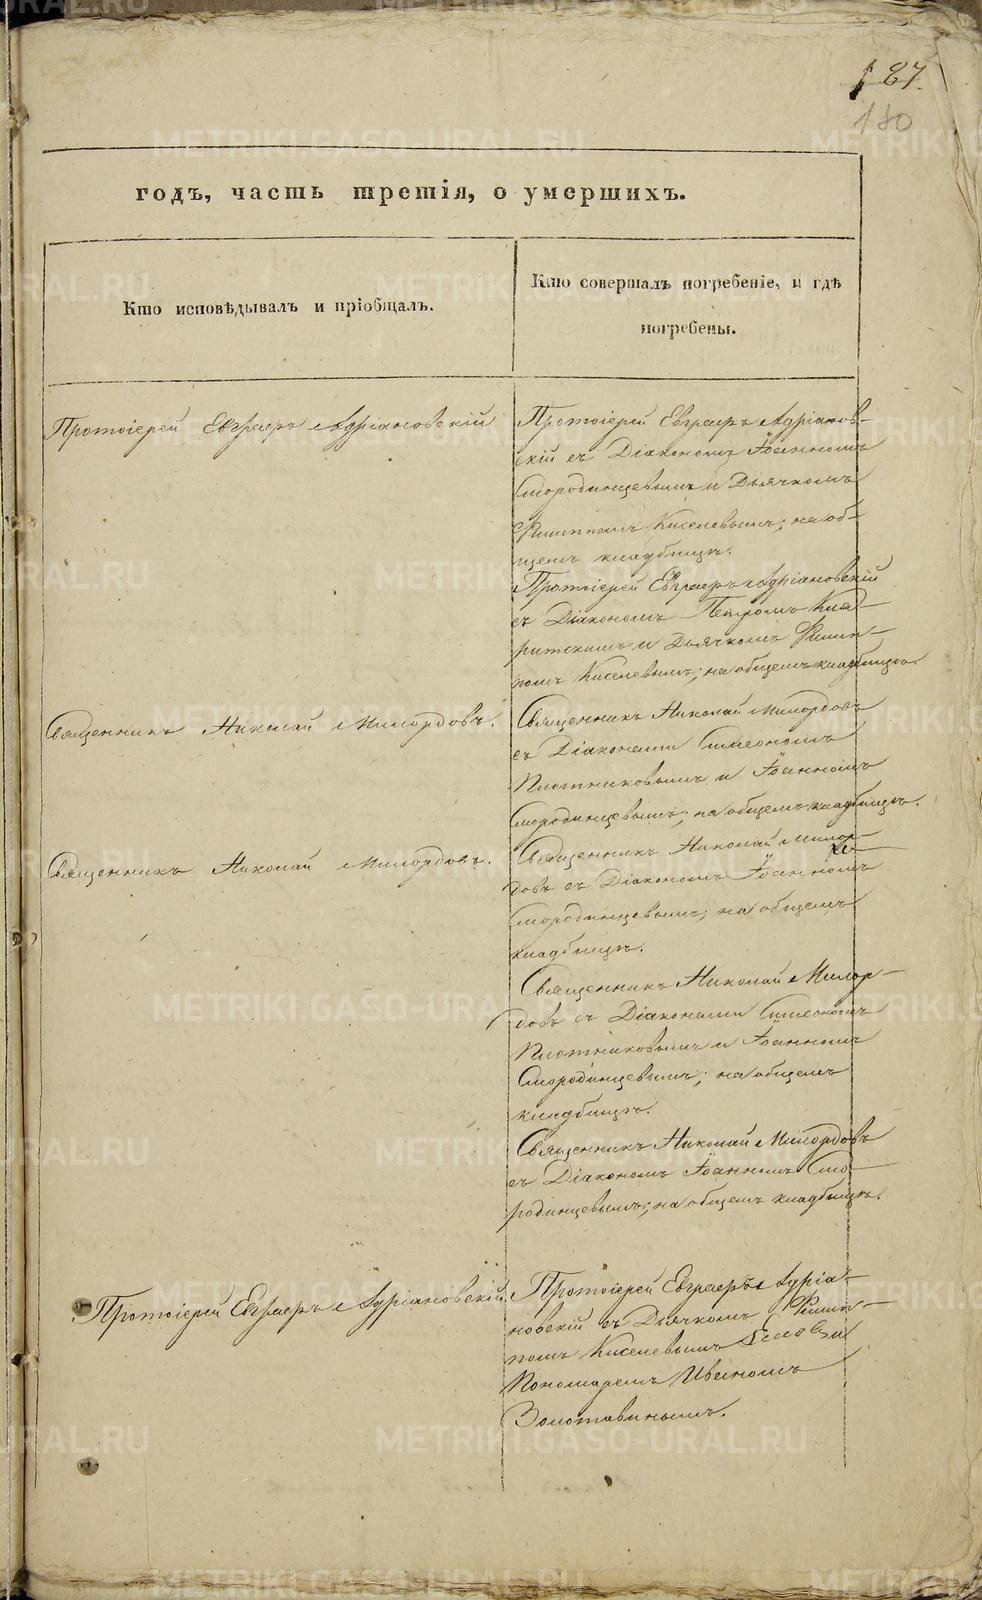 187.
180
годъ, часть третія, о умершихъ.
Кто исповѣдывалъ и пріобщалъ.
Кто совершалъ погребеніе, и гдѣ
погребены.
Протоіерей Евграфъ Адріановскій
Протоіерей Евграфъ Адріанов-
скій съ Діакономъ Іоанномъ
Смородинцевымъ и Дьячкомъ
Филиппомъ Киселевымъ; на об-
щемъ кладбищѣ.
Протоіерей Евграфъ Адріановскій
съ Діакономъ Петромъ
и Дьячкомъ Филип-
помъ Киселевымъ; на общемъ кладбищѣ.
Священникъ Николай Милордовъ.
Священникъ Николай Милордовъ
съ Діаконами Симеономъ
Плотниковымъ и Іоанномъ
Смородинцевымъ; на общемъ кладбищѣ.
Священникъ Николай Милордовъ.
Священникъ Николай Милор-
довъ съ Діакономъ Іоанномъ
Смородинцевымъ; на общемъ
кладбищѣ.
Священникъ Николай Милор-
довъ съ Діаконами Симеономъ
Плотниковымъ и Іоанномъ
Смородинцевымъ; на общемъ
кладбищѣ.
Священникъ Николай Милордовъ
съ Діакономъ Іоанномъ Смо-
родинцевымъ; на общемъ кладбищѣ.
Протоіерей Евграфъ Адріановскій.
Протоіерей Евграфъ Адріа-
новскій съ Дьячкомъ Филип-
помъ Киселевымъ
Пономаремъ Иваномъ
Золотавинымъ.
METRIKI.GASO-URAL.RU